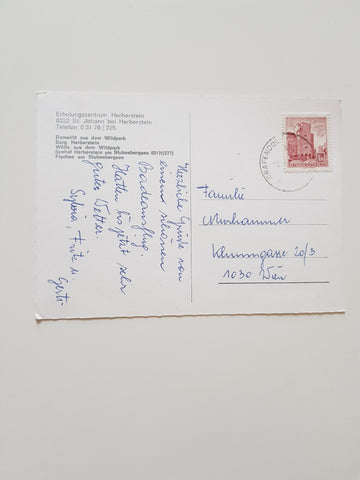 Erholungszentrum Herberstein
8222 St. Johann bei Herberstein
Telefon 0 31 76 / 225
Damwild aus dem Wildpark
Burg Herberstein
Wölfe aus dem Wildpark
Seehof Herberstein am Stubenbergsee (03176/277)
Fischen am Stubenbergsee
Herzliche Grüße von
einem schönen
Badeausflug.
Hatten bis jetzt sehr
gutes Wetter.
Sylvia, Fritz u.
Gerti
Familie
Klimmgasse 20/3
1030 Wien